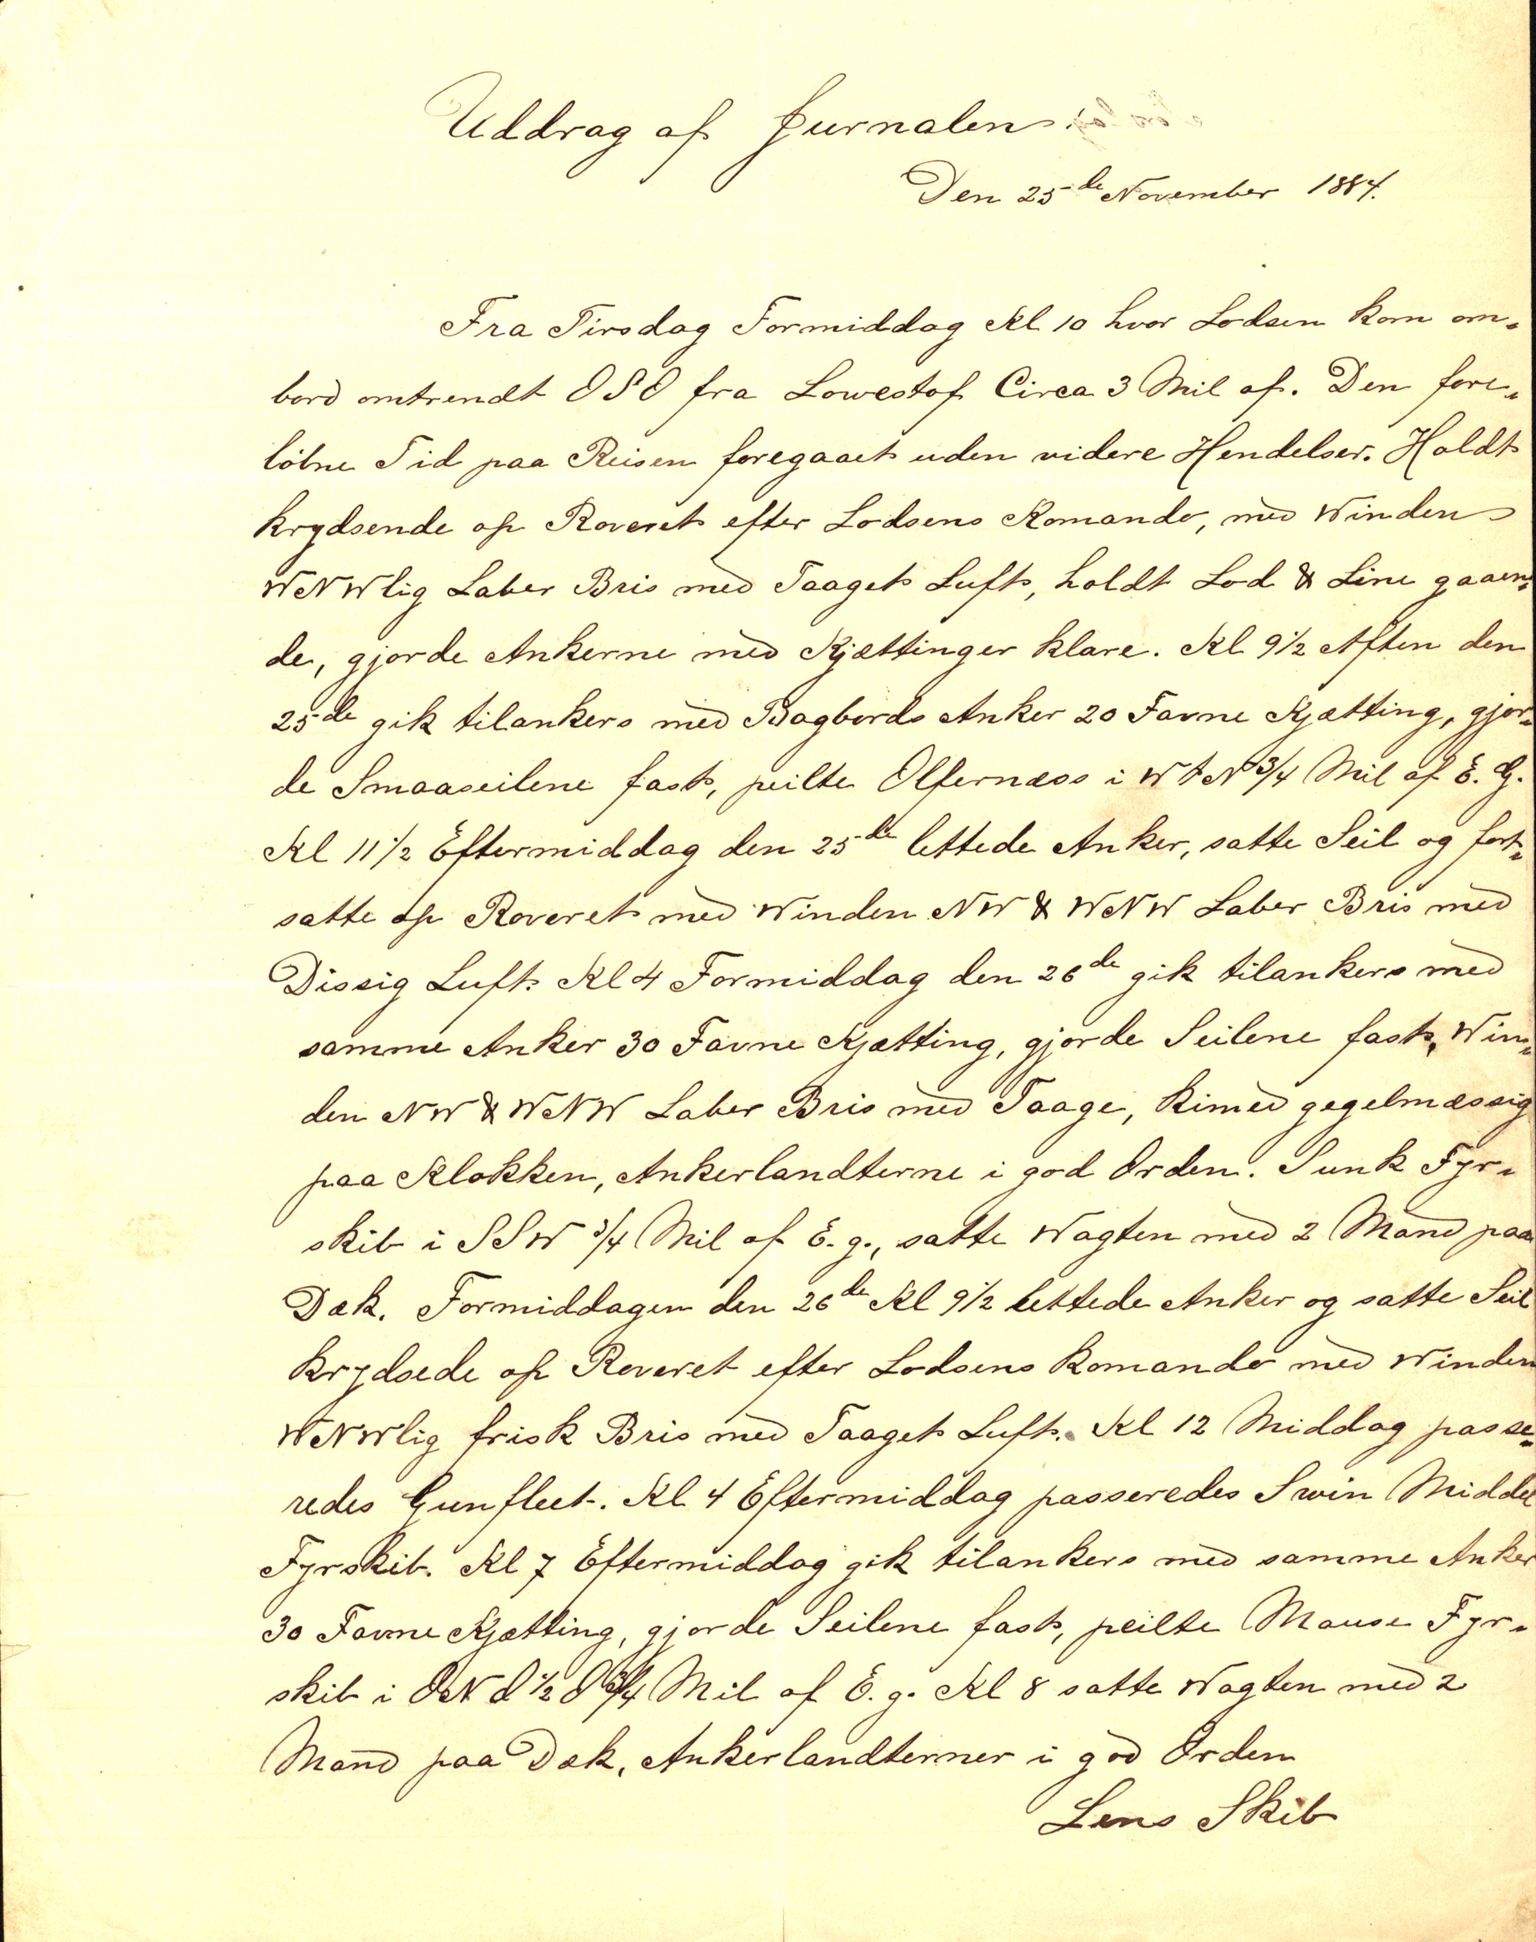 Uddrag af Jurnalen.
Den 25de November 1884.
Fra Tirsdag Formiddag Kl 10 hvor Lodsen kom om-
bord omtrendt OSO fra Lowestof Circa 3 Mil af. Den fore-
löbne Tid paa Reisen foregaaet uden videre Hendelser. Holdt
krydsende op Roveret efter Lodsens Komando, med Winden
WNWlig Laber Bris med Taaget Luft, holdt Lod & Line gaaen-
de, gjorde Ankerne med Kjættinger klare. Kl 9 1/2 Aften den
25de gik tilankers med Bagbords Anker 20 Favne Kjætting, gjor-
de Smaaseilene fast, peilte Olfernæss i W t N 3/4 Mil af E. G.
Kl 11 1/2 Eftermiddag den 25de lettede Anker, satte Seil og fort-
satte op Roveret med Winden NW & WNW Laber Bris med
Dissig Luft. Kl 4 Formiddag den 26de gik tilankers med
samme Anker 30 Favne Kjætting, gjorde Seilene fast, Win-
den NW & WNW Laber Bris med Taage, kimed gegelmæssig
paa Klokken, Ankerlandterne i god Orden. Sunk Fyr-
skib i SSW 3/4 Mil af E. g., satte Wagten med 2 Mand paa
Dæk. Formiddagen den 26de Kl 9 1/2 lettede Anker og satte Seil
krydsede op Roveret efter Lodsens komando med Winden
WNWlig frisk Bris med Taaget Luft. Kl 12 Middag passe-
redes Gunfleet. Kl 4 Eftermiddag passeredes Swin Middel
Fyrskib. Kl 7 Eftermiddag gik tilankers med samme Anker
30 Favne Kjætting, gjorde Seilene fast, peilte Mause Fyr-
skib i 1/2 O 3/4 Mil af E. g. Kl 8 satte Wagten med 2
Mand paa Dæk, Ankerlandterner i god Orden
Lens Skib